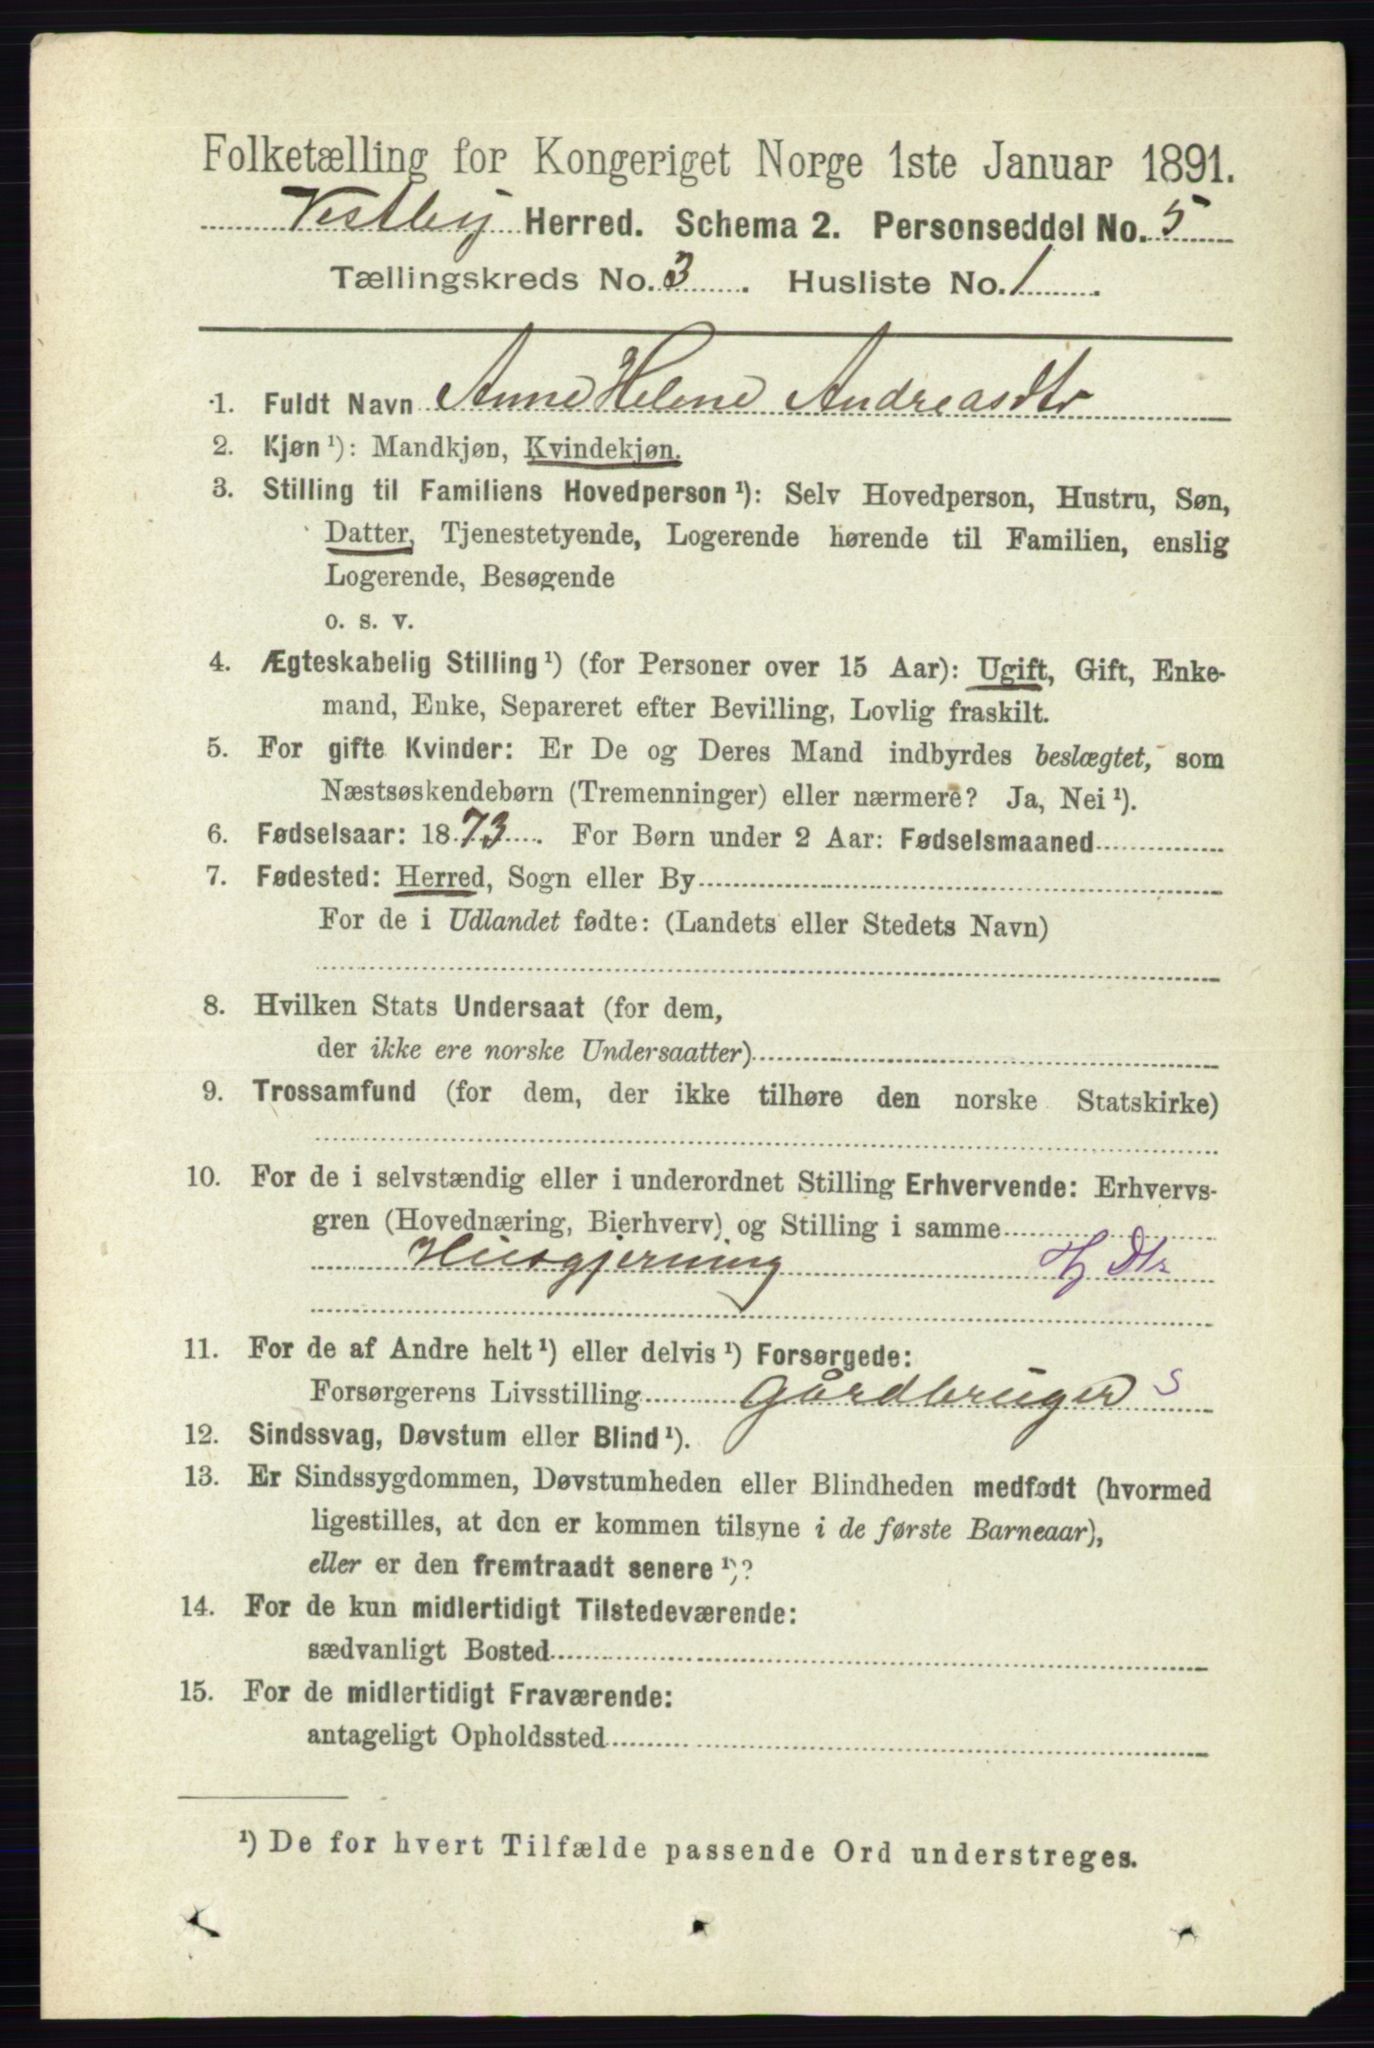 Folketælling for Kongeriget Norge 1ste Januar 1891.
Vestby Herred. Schema 2. Personseddel No. 5
Tællingskreds No. 3. Husliste No. 1.
1. Fuldt Navn Anne Helene Andreasdtr
2. Kjøn ¹): Mandkjøn, Kvindekjøn.
3. Stilling til Familiens Hovedperson ¹): Selv Hovedperson, Hustru, Søn,
Datter, Tjenestetyende, Logerende hørende til Familien, enslig
Logerende, Besøgende
o. s. v.
4. Ægteskabelig Stilling ¹) (for Personer over 15 Aar): Ugift, Gift, Enke-
mand, Enke, Separeret efter Bevilling, Lovlig fraskilt.
5. For gifte Kvinder: Er De og Deres Mand indbyrdes beslægtet, som
Næstsøskendebørn (Tremenninger) eller nærmere? Ja, Nei ¹).
6. Fødselsaar: 1873. For Børn under 2 Aar: Fødselsmaaned
7. Fødested: Herred, Sogn eller By
For de i Udlandet fødte: (Landets eller Stedets Navn)
8. Hvilken Stats Undersaat (for dem,
der ikke ere norske Undersaatter)
9. Trossamfund (for dem, der ikke tilhøre den norske Statskirke)
10. For de i selvstændig eller i underordnet Stilling Erhvervende: Erhvervs-
gren (Hovednæring, Bierhverv) og Stilling i samme
Husgjerning Hj Dtr
11. For de af Andre helt ¹) eller delvis ¹) Forsørgede:
Forsørgerens Livsstilling Gårdbruger S
12. Sindssvag, Døvstum eller Blind ¹).
13. Er Sindssygdommen, Døvstumheden eller Blindheden medfødt (hvormed
ligestilles, at den er kommen tilsyne i de første Barneaar),
eller er den fremtraadt senere ¹)?
14. For de kun midlertidigt Tilstedeværende:
sædvanligt Bosted
15. For de midlertidigt Fraværende:
antageligt Opholdssted
¹) De for hvert Tilfælde passende Ord understreges.